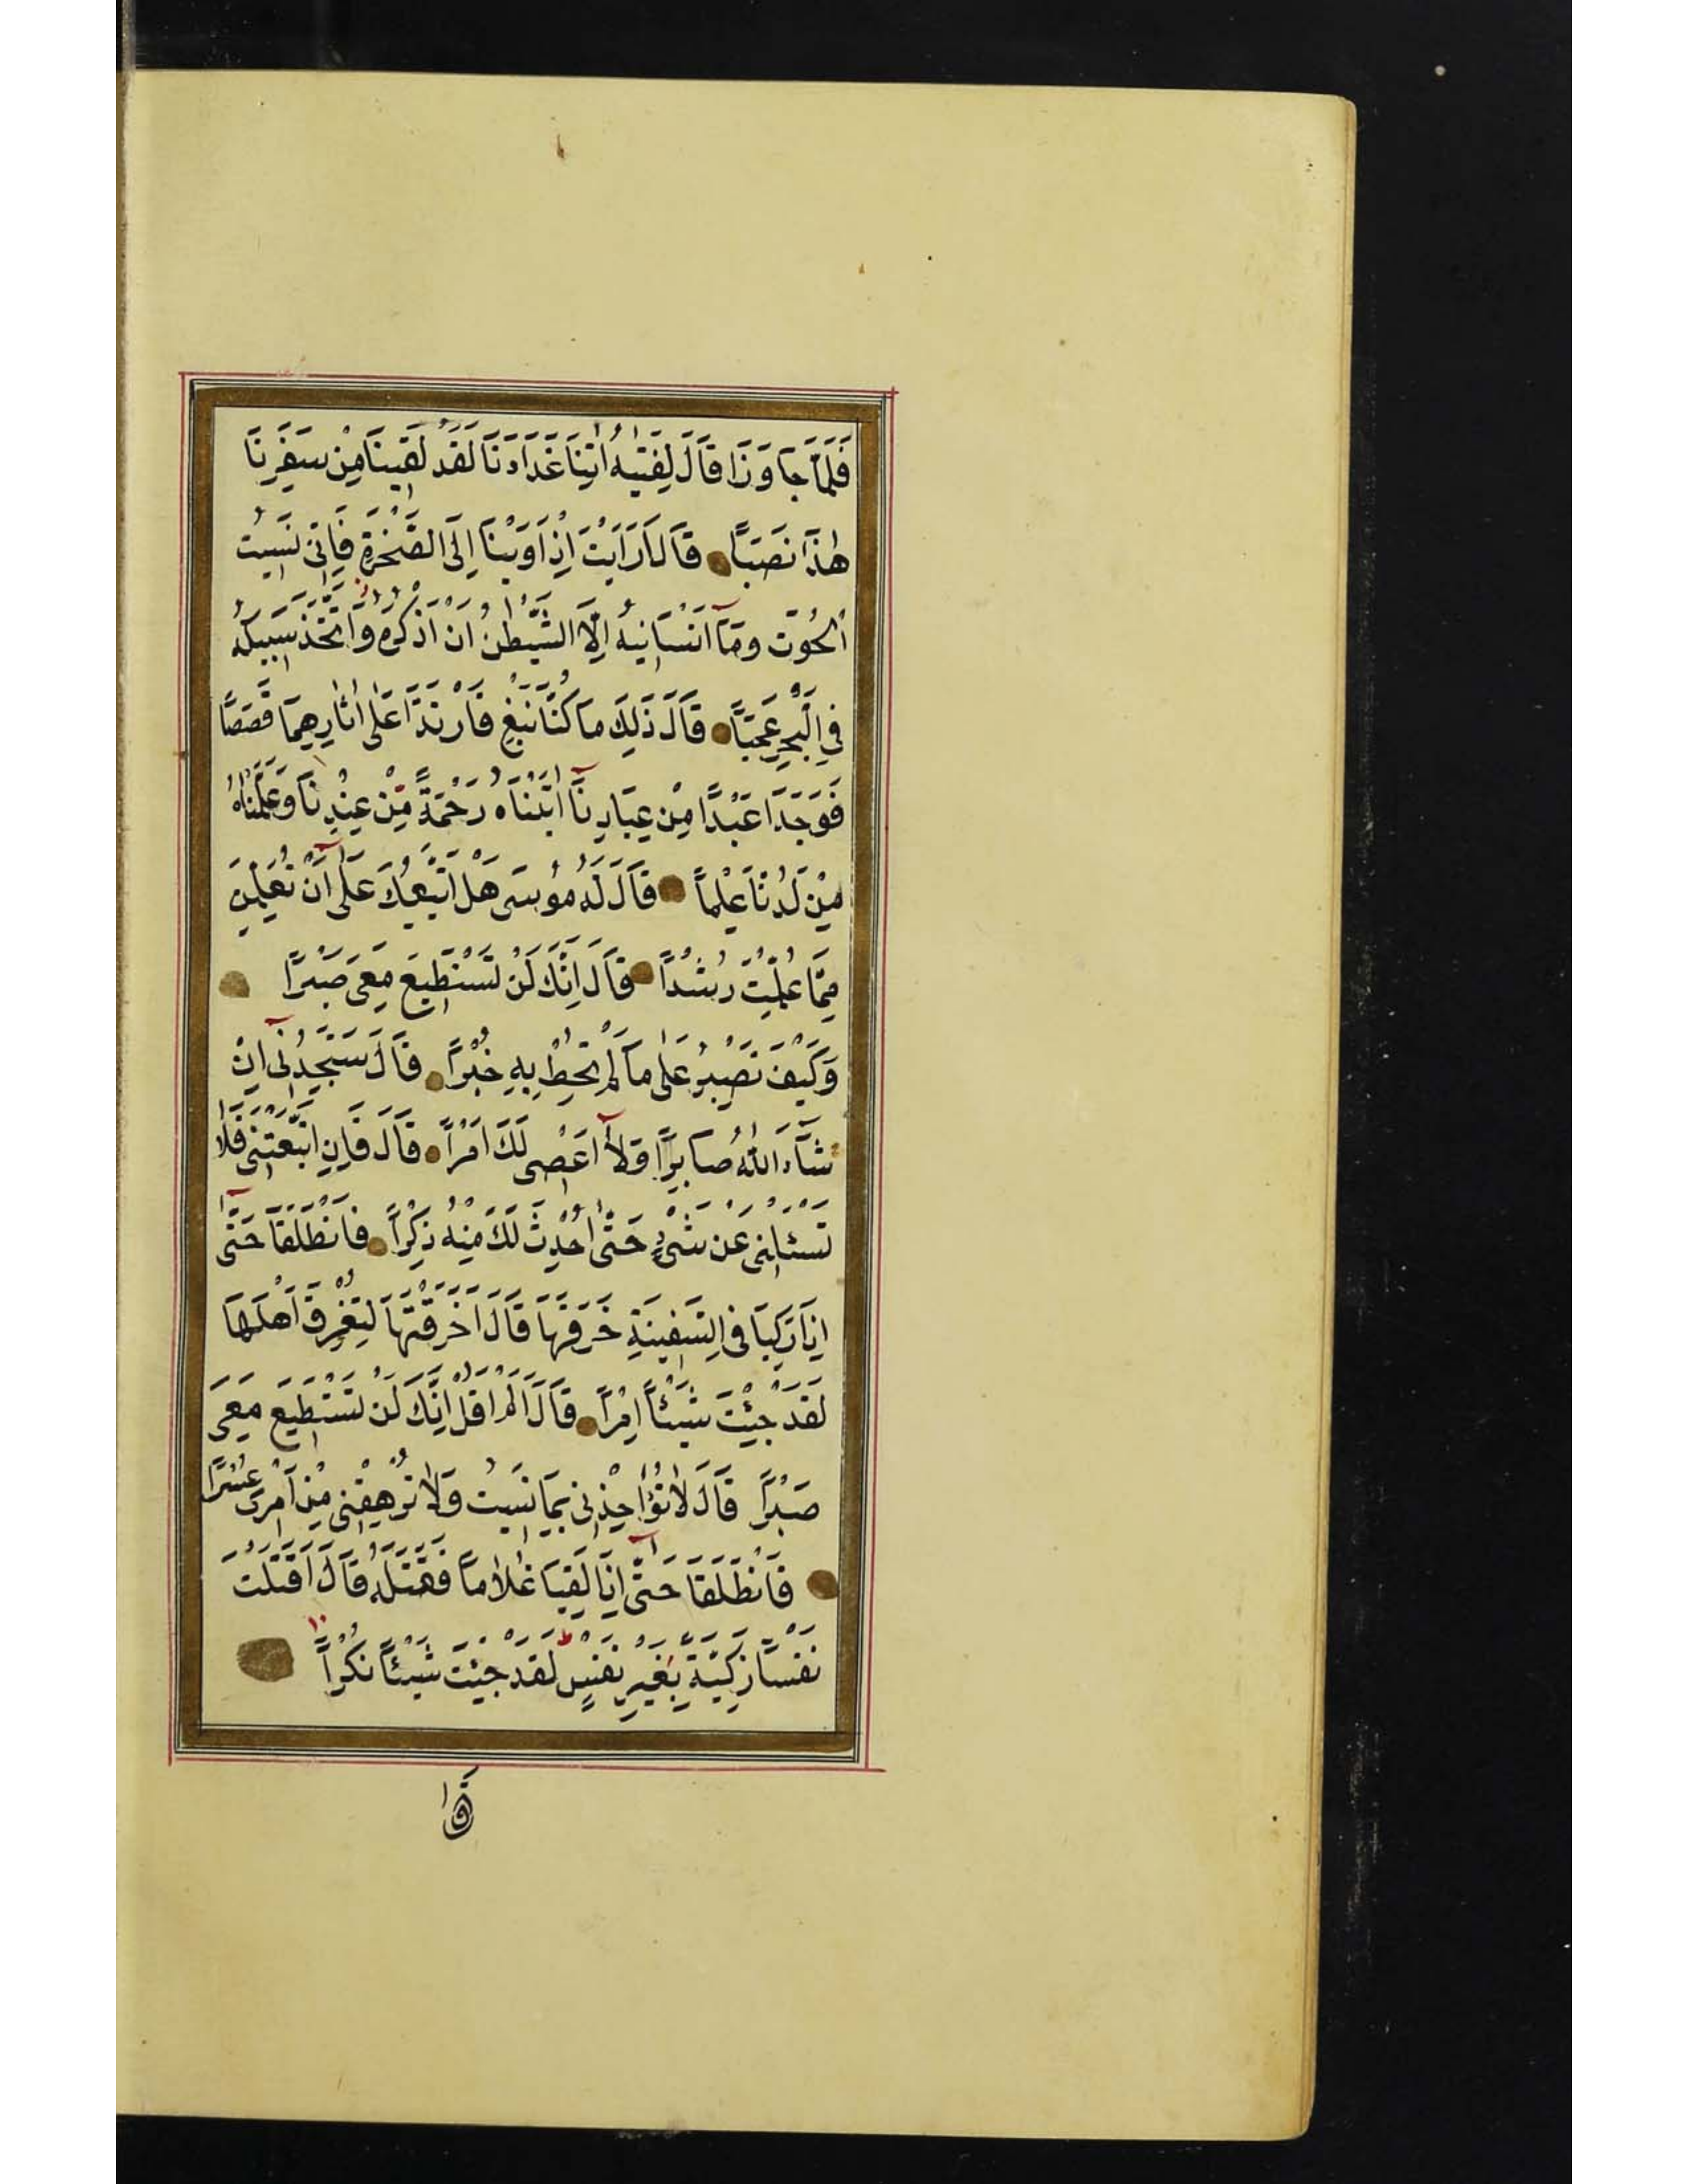 فَلَمَّا جَاوَزَا قَالَ لِفَتٰیهُ اٰتِنَا غَدَاءَنَا لَقَدْ لَقِینَا مِنْ سَفَرِنَا
هٰذَا نَصَبًا قَالَ اَرَاَیْتَ اِذْ اَوَیْنَا اِلَی الصَّخْرَةِ فَاِنِّی نَسِیتُ
الْحُوتَ وَمَآ اَنْسَانِیهُ اِلَّا الشَّیْطٰنُ اَنْ اَذْكُرَهُ وَاتَّخَذَ سَبِیلَهُ
فِی الْبَحْرِ عَجَبًا قَالَ ذٰلِكَ مَا كُنَّا نَبْغِ فَارْتَدَّا عَلٰی اٰثَارِهِمَا قَصَصًا
فَوَجَدَا عَبْدًا مِنْ عِبَادِنَآ اٰتَیْنَاهُ رَحْمَةً مِّنْ عِنْدِنَا وَعَلَّمْنَاهُ
مِنْ لَدُنَّا عِلْمًا قَالَ لَهُ مُوسٰی هَلْ اَتَّبِعُكَ عَلٰٓی اَنْ تُعَلِّمَنِ
مِمَّا عُلِّمْتَ رُشْدًا قَالَ اِنَّكَ لَنْ تَسْتَطِیعَ مَعِیَ صَبْرًا
وَكَیْفَ تَصْبِرُ عَلٰی مَا لَمْ تُحِطْ بِهِ خُبْرًا قَالَ سَتَجِدُنِیٓ اِنْ
شَآءَ اللّٰهُ صَابِرًا وَلَآ اَعْصِی لَكَ اَمْرًا قَالَ فَاِنِ اتَّبَعْتَنِی فَلَا
تَسْـَٔلْنِی عَنْ شَیْءٍ حَتّٰٓی اُحْدِثَ لَكَ مِنْهُ ذِكْرًا فَانْطَلَقَا حَتّٰٓی
اِذَا رَكِبَا فِی السَّفِینَةِ خَرَقَهَا قَالَ اَخَرَقْتَهَا لِتُغْرِقَ اَهْلَهَا
لَقَدْ جِئْتَ شَیْئًا اِمْرًا قَالَ اَلَمْ اَقُلْ اِنَّكَ لَنْ تَسْتَطِیعَ مَعِیَ
صَبْرًا قَالَ لَا تُؤَاخِذْنِی بِمَا نَسِیتُ وَلَا تُرْهِقْنِی مِنْ اَمْرِی عُسْرًا
فَانْطَلَقَا حَتّٰٓی اِذَا لَقِیَا غُلَامًا فَقَتَلَهُ قَالَ اَقَتَلْتَ
نَفْسًا زَكِیَّةً بِغَیْرِ نَفْسٍ لَقَدْ جِئْتَ شَیْئًا نُكْرًا
قَا